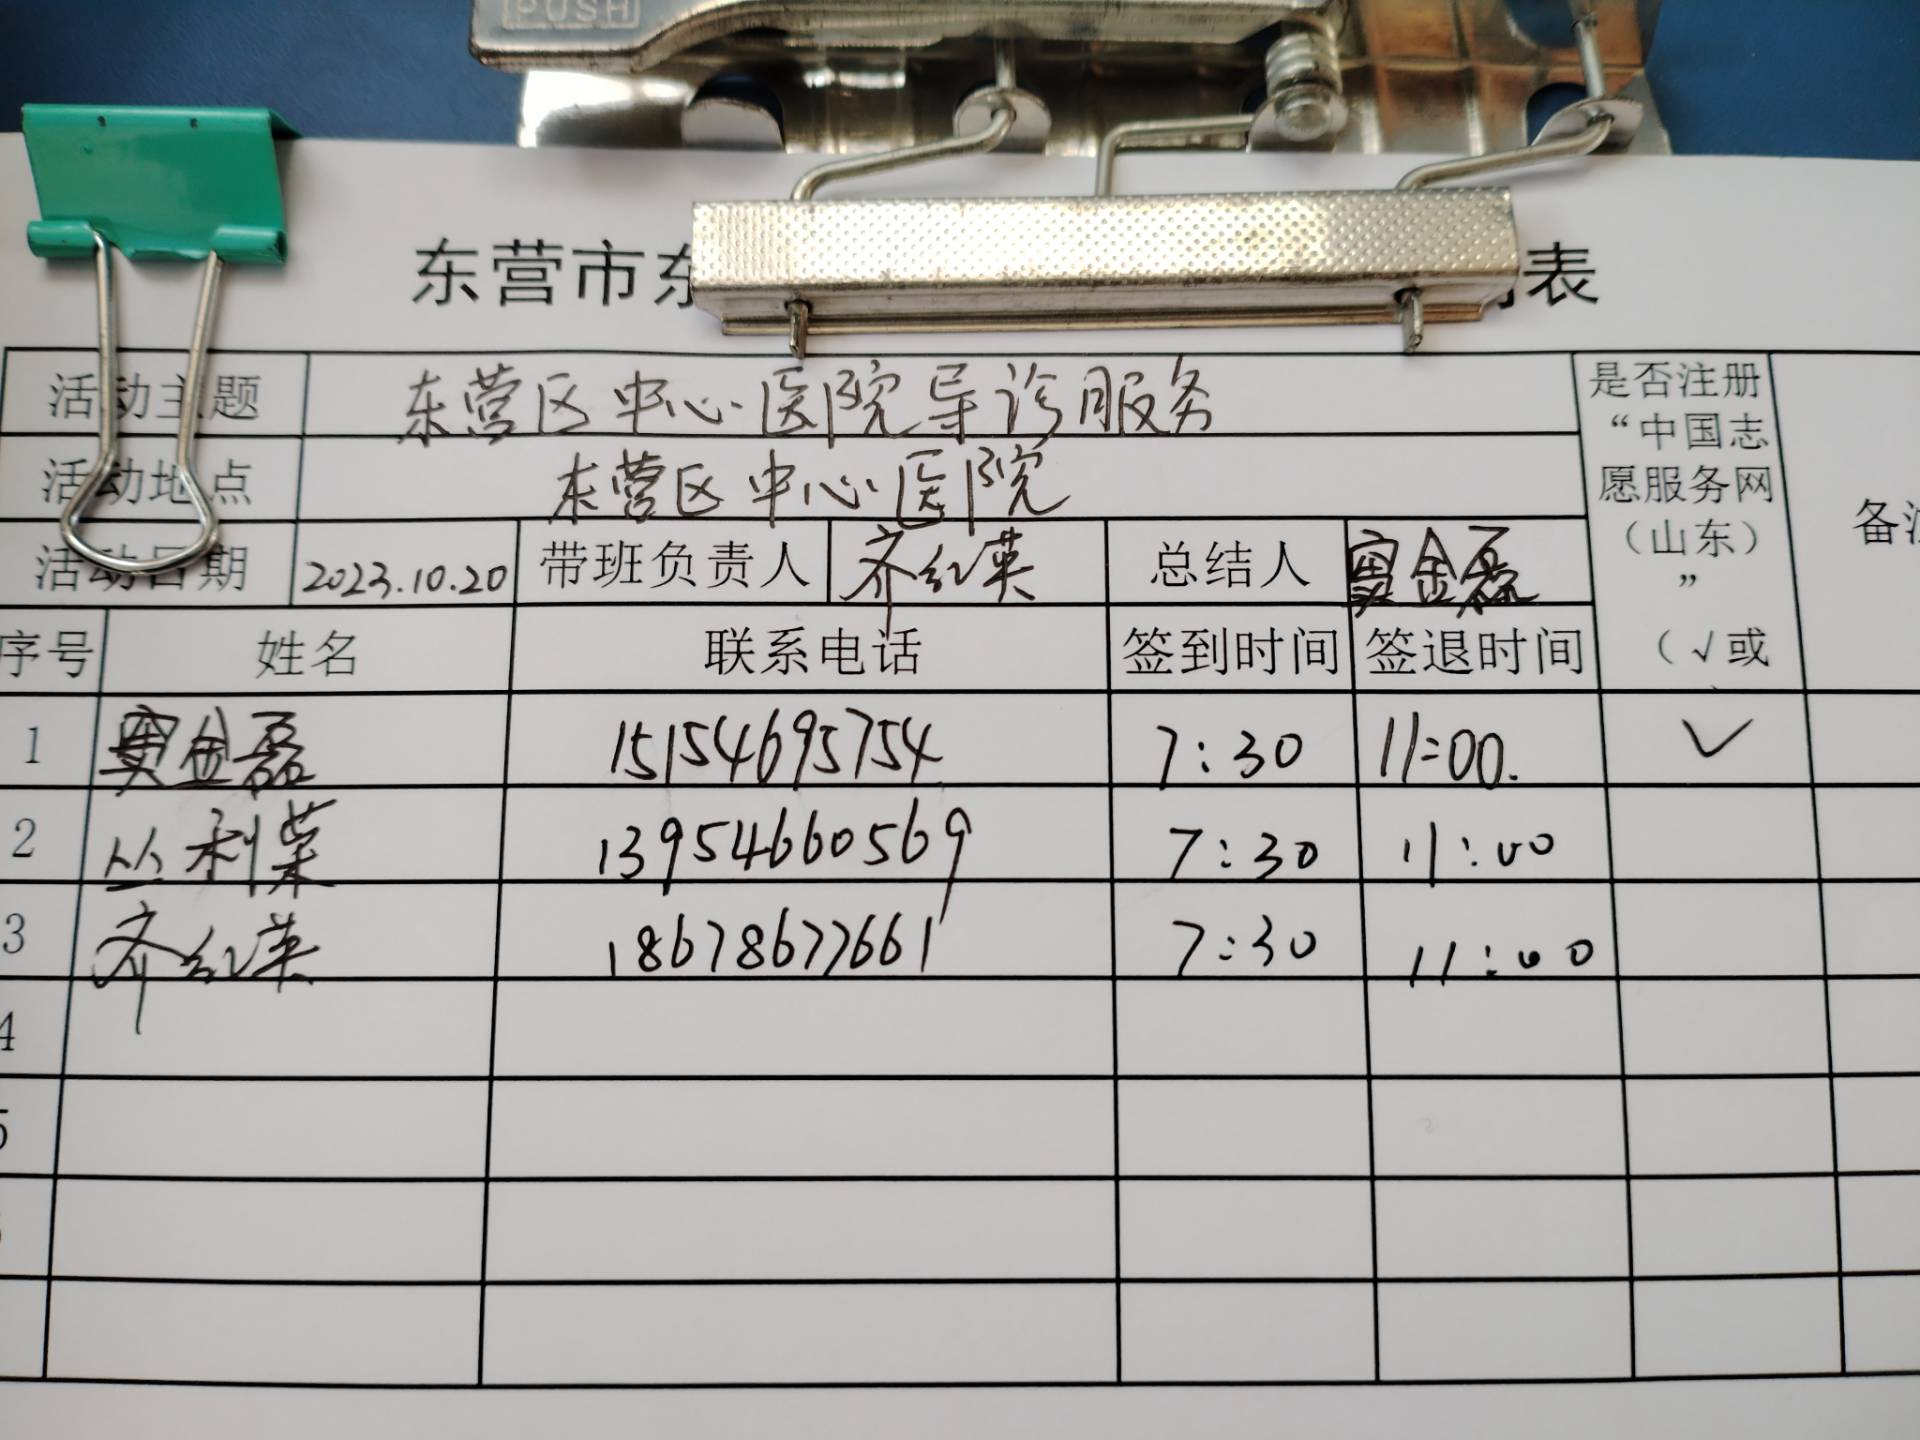 PUSH
东营市东 表
活动主题 东营区中心医院导诊服务 是否注册
“中国志
愿服务网
（山东）
”
（√或
活动地点 东营区中心医院
活动日期 2023.10.20 带班负责人 齐红英 总结人 窦金磊
备注
序号 姓名 联系电话 签到时间 签退时间
1 窦金磊 15154695754 7:30 11:00. ✓
2 丛利荣 13954660569 7:30 11:00
3 齐红英 18678677661 7:30 11:00
4
5